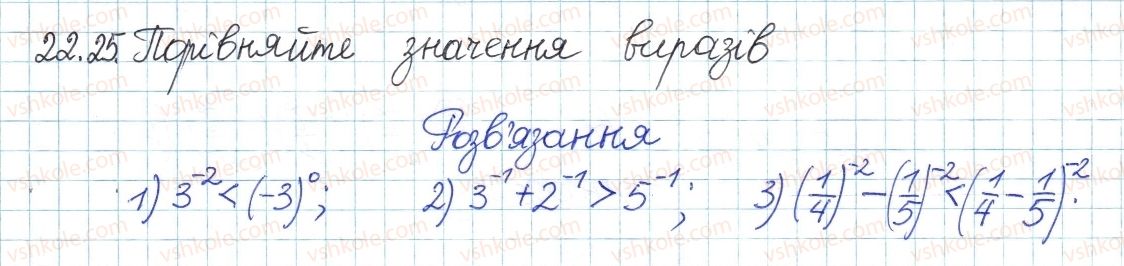 22.25. Порівняйте значення виразів
Розв'язання
1) 3⁻² < (-3)⁰; 2) 3⁻¹ + 2⁻¹ > 5⁻¹; 3) (1/4)⁻² - (1/5)⁻² < (1/4 - 1/5)⁻².